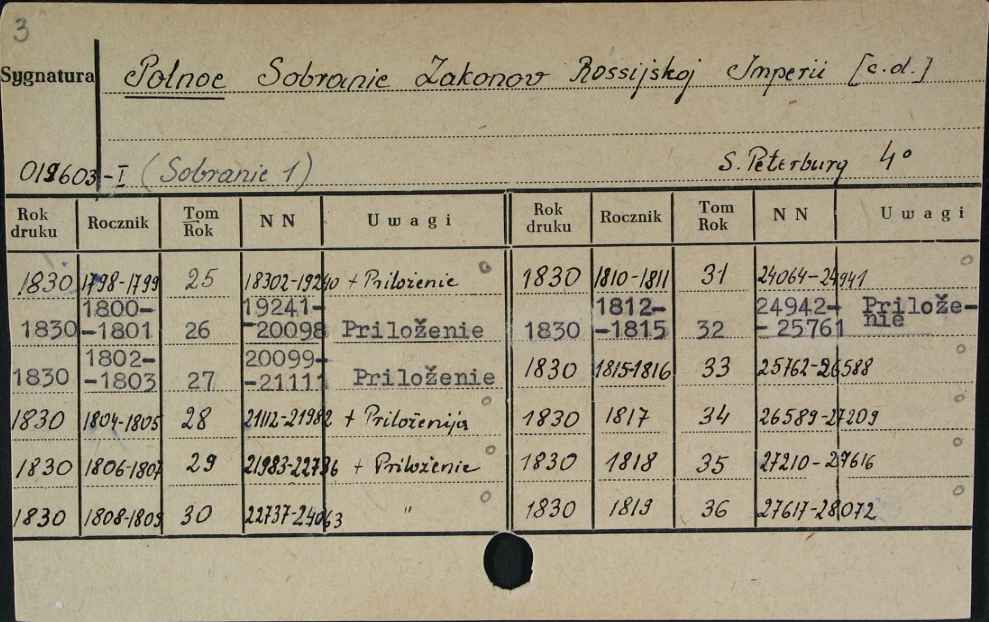 3
Sygnatura Połnoe Sobranie Zakonov Rossijskoj Imperii [c.d.]
019603-I (Sobranie 1) S. Peterburg 4°
Rok druku Rocznik Tom Rok NN Uwagi Rok druku Rocznik Tom Rok NN Uwagi
1830 1798-1799 25 18302-19240 + Priloženie 1830 1810-1811 31 24064-24941
1830 1800-1801 26 19241-20098 Priloženie 1830 1812-1815 32 24942-25761 Priloženie
1830 1802-1803 27 20099-21111 Priloženie 1830 1815-1816 33 25762-26588
1830 1804-1805 28 21112-21982 + Priloženija 1830 1817 34 26589-27209
1830 1806-1807 29 21983-22736 + Priloženie 1830 1818 35 27210-27616
1830 1808-1809 30 22737-24063 " 1830 1819 36 27617-28072